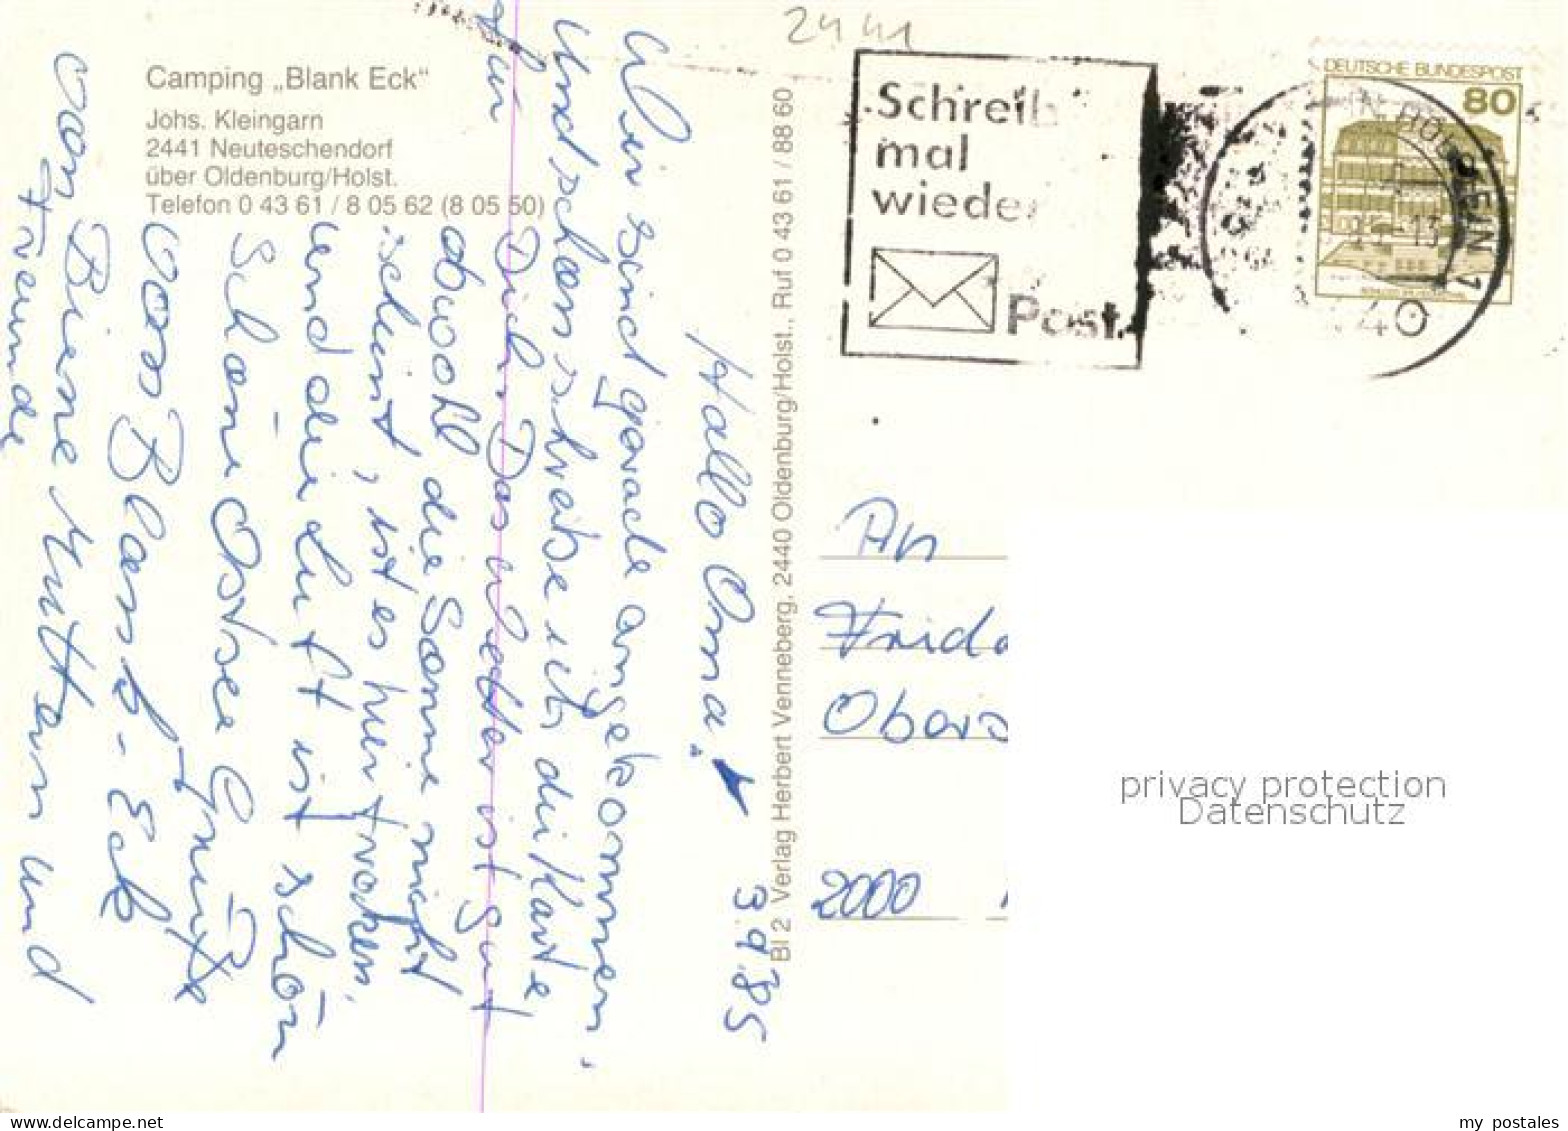 2441
Camping „Blank Eck“
Johs. Kleingarn
2441 Neuteschendorf
über Oldenburg/Holst.
Telefon 0 43 61 / 8 05 62 (8 05 50)
Hallo Oma!
3.9.85
Wir sind gerade angekommen,
und schon schreibe ich die Karte
für Dich. Das Wetter ist gut
obwohl die Sonne nicht
scheint, ist es hier trocken.
und die Luft ist schön
Schöne Ostsee Grüße
vom Blank-Eck
von Biene Muttern und
Freunde
BI 2 Verlag Herbert Venneberg, 2440 Oldenburg/Holst., Ruf 0 43 61 / 88 60
Schreib
mal
wieder
Post
DEUTSCHE BUNDESPOST
80
An
Frida
2000
privacy protection
Datenschutz
my postales